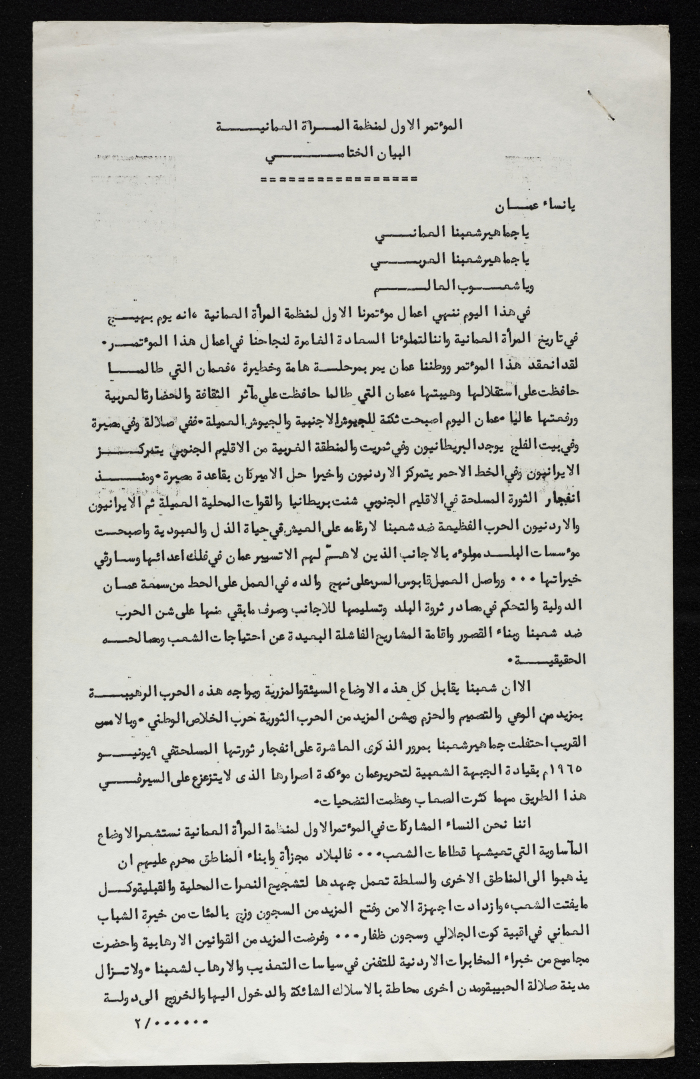 المؤتمر الاول لمنظمة المـــرأة العمانيـــــة
البيان الختامـــــــي
================
يانساء عمـــان
ياجماهير شعبنا العمانـــــي
ياجماهير شعبنا العربـــــي
وياشعـــوب العالــــــم
في هذا اليوم ننهي اعمال مؤتمرنا الاول لمنظمة المرأة العمانية ، انه يوم بهيـــج
في تاريخ المرأة العمانية واننا لتملؤنا السعادة الغامرة لنجاحنا في اعمال هذا المؤتمـــر .
لقد انعقد هذا المؤتمر ووطننا عمان يمر بمرحلـــة هامة وخطيرة ، فعمان التي طالمـــا
حافظت على استقلالها وهيبتها ، عمان التي طالما حافظت علي مآثر الثقافة والحضارة العربية
ورفعتها عاليا . عمان اليوم اصبحت ثكنة للجيوش الاجنبية والجيوش العميلة . ففي صلالة وفي مصيرة
وفي بيت الفلج يوجد البريطانيون وفي ثمريت والمنطقة الغربية من الاقليم الجنوبي يتمركـــز
الايرانيون وفي الخط الاحمر يتمركز الاردنيون واخيرا حل الاميركان بقاعدة مصيرة . ومنـــذ
انفجار الثورة المسلحة في الاقليم الجنوبي شنت بريطانيا والقوات المحلية العميلة ثم الايرانيون
والاردنيون الحرب الفظيعة ضد شعبنا لارغامه على العيش في حياة الذل والعبودية واصبحـــت
مؤسسات البلـــد مملوءه بالاجانب الذين لاهمّ لهم الا تسيير عمان في فلك اعدائها وسارقي
خيراتها ... وواصل العميل قابوس السير على نهج والده في العمل على الحط من سمعة عمـــان
الدولية والتحكم في مصادر ثروة البلد وتسليمها للاجانب وصرف مابقي منها على شن الحرب
ضد شعبنا وبناء القصور واقامة المشاريع الفاشلة البعيدة عن احتياجات الشعب ومصالحـــه
الحقيقيـــة .
الا ان شعبنا يقابل كل هذه الاوضاع السيئة والمزرية ويواجه هذه الحرب الرهيبـــة
بمزيد من الوعي والتصميم والحزم ويشن المزيد من الحرب الثورية حرب الخلاص الوطني . وبالامس
القريب احتفلت جماهير شعبنا بمرور الذكرى العاشرة على انفجار ثورتها المسلحة في ٩ يونيـــو
١٩٦٥م بقيادة الجبهة الشعبية لتحرير عمان مؤكدة اصرارها الذى لايتزعزع على السير فـــي
هذا الطريق مهما كثرت الصعاب وعظمت التضحيات .
اننا نحن النساء المشاركات في المؤتمر الاول لمنظمة المرأة العمانية نستشعر الاوضاع
المأساوية التي تعيشها قطاعات الشعب ... فالبلاد مجزأة وابناء المناطق محرم عليهم ان
يذهبوا الى المناطق الاخرى والسلطة تعمل جهدها لتشجيع النعرات المحلية والقبلية وكـــل
مايفتت الشعب ، وازدادت اجهزة الامن وفتح المزيد من السجون وزج بالمئات من خيرة الشباب
العماني في اقبية كوت الجلالي وسجون ظفار ... وفرضت المزيد من القوانين الارهابية واحضرت
مجاميع من خبراء المخابرات الاردنية للتفنن في سياسات التعذيب والارهاب لشعبنا . ولاتـــزال
مدينة صلالة الحبيبة ومدن اخرى محاطة بالاسلاك الشائكة والدخول اليها والخروج الى دولـــة
٢/......